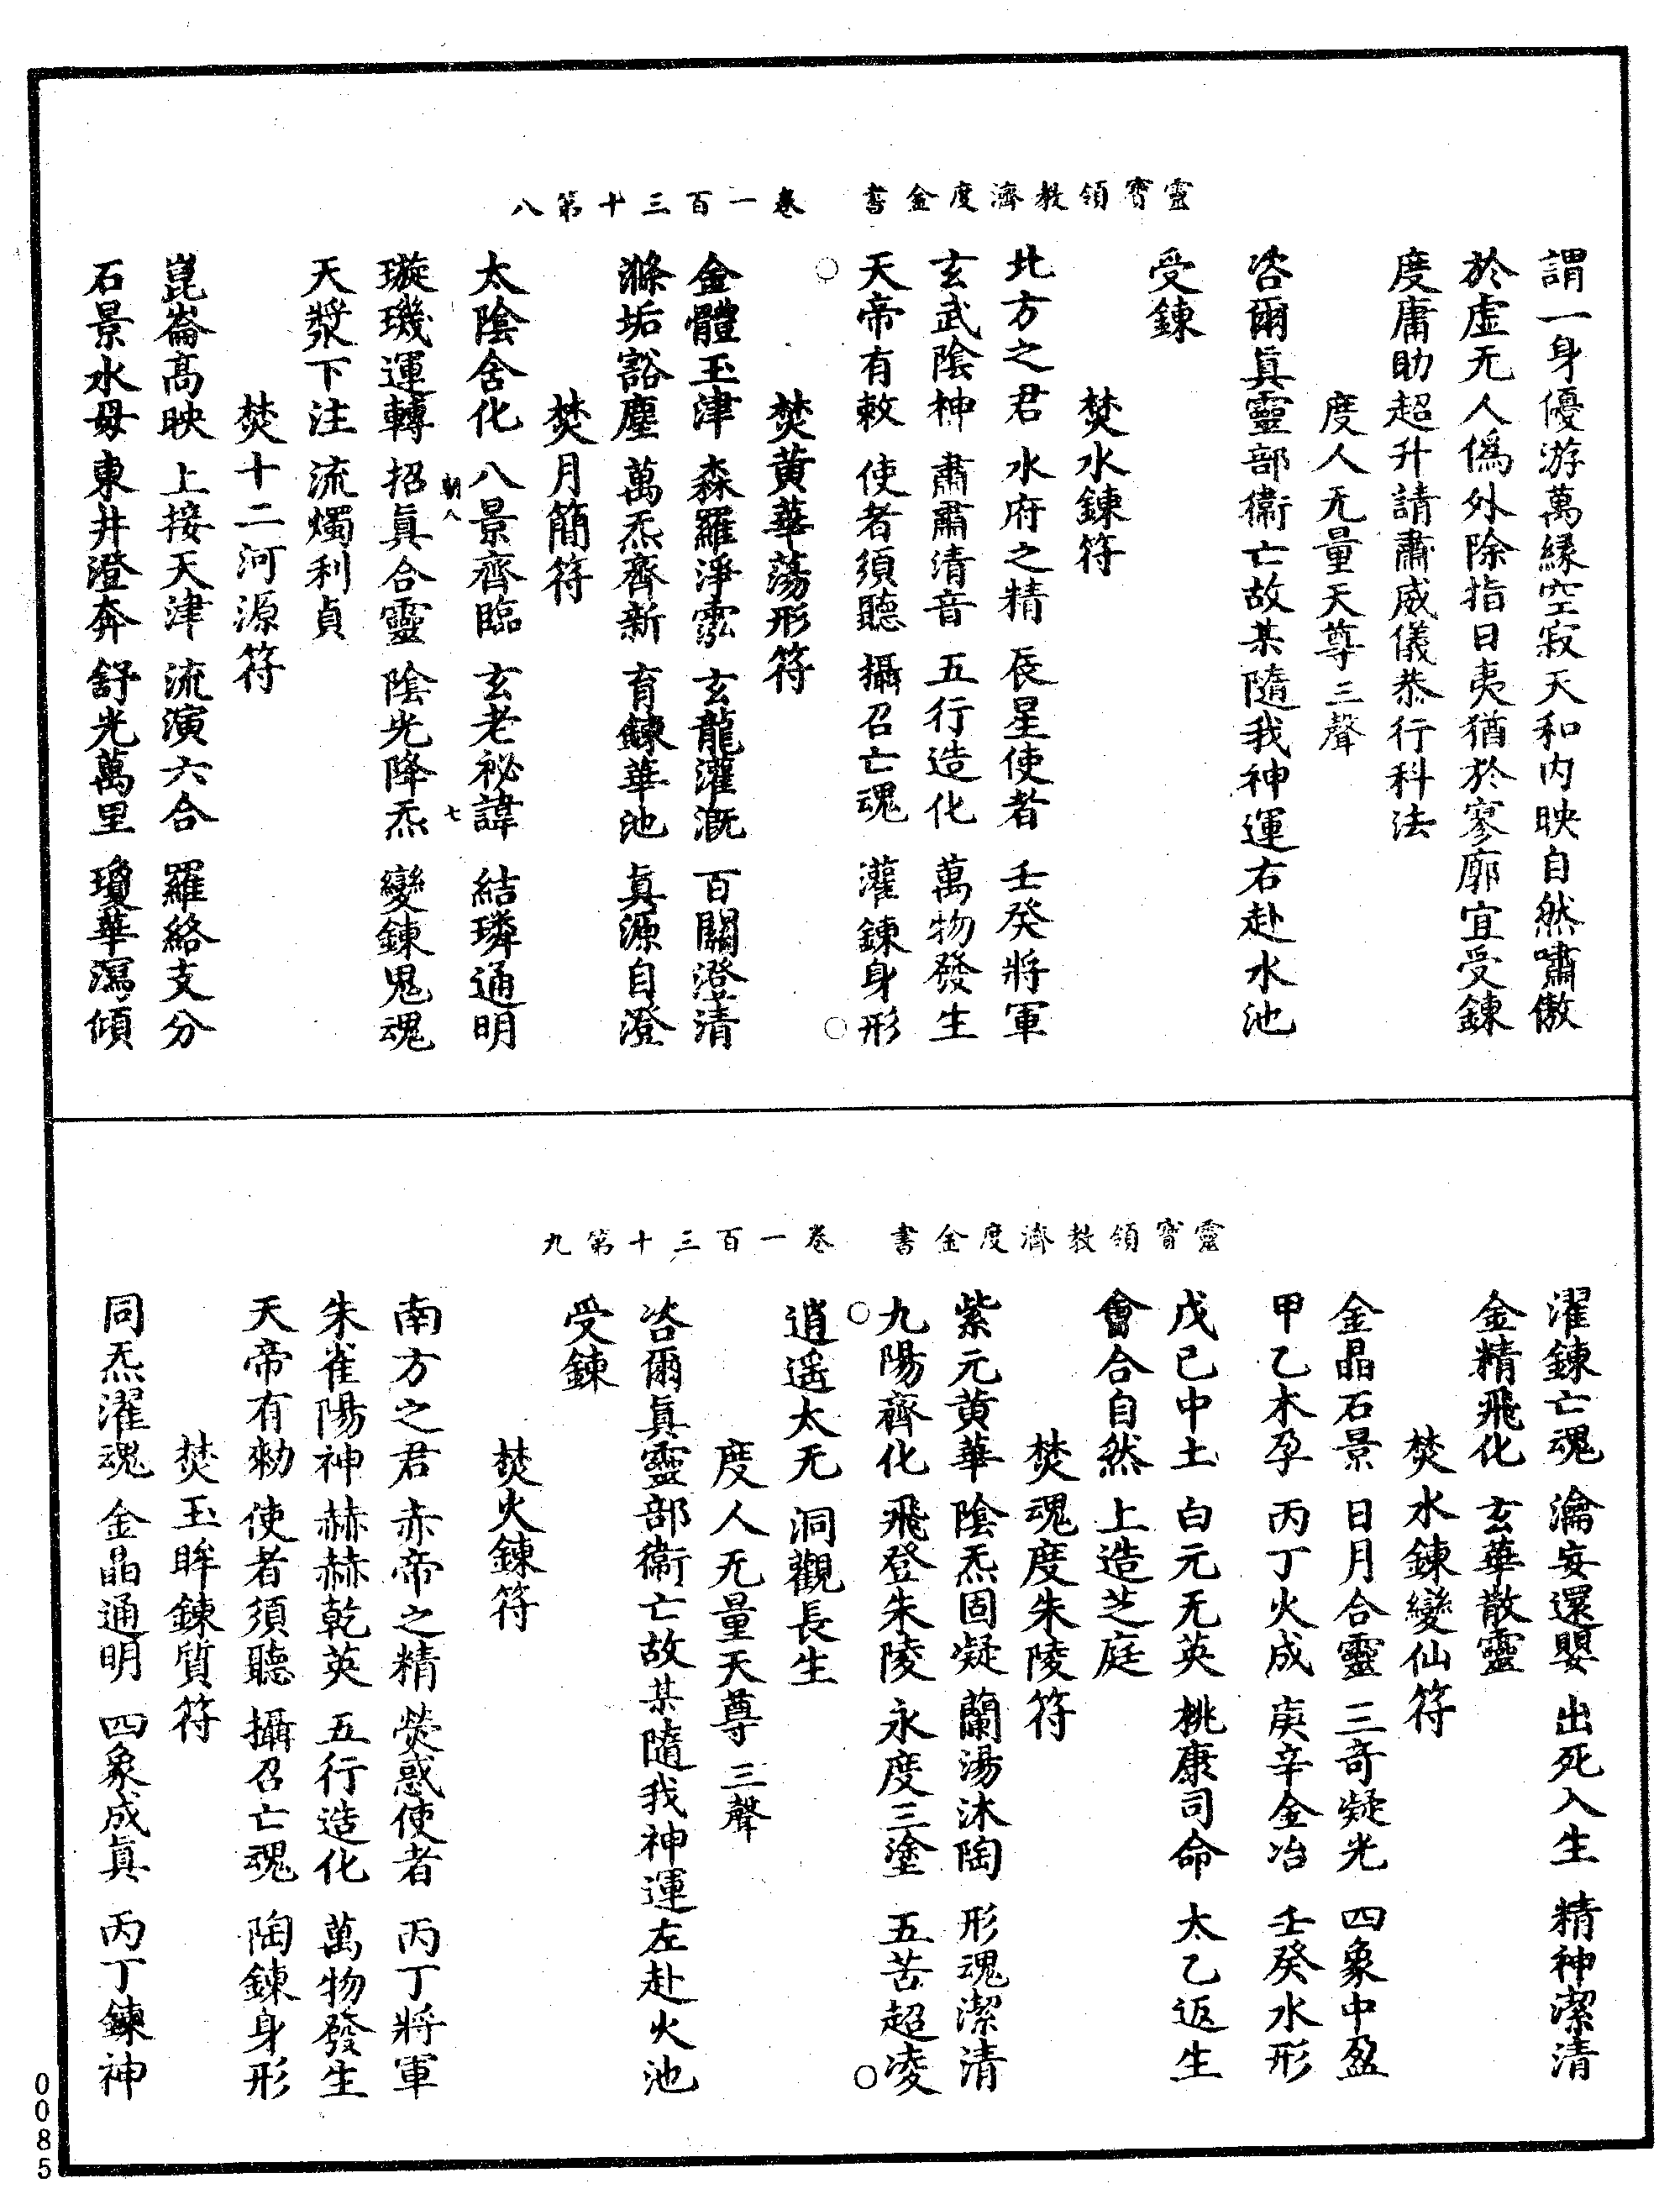 靈寶領教濟度金書　卷一百三十第八
謂一身優游萬緣空寂天和內映自然嘯傲
於虛无人僞外除指日夷猶於寥廓宜受鍊
度庸助超升請肅威儀恭行科法
度人无量天尊三聲
咨爾眞靈部衛亡故某隨我神運右赴水池
受鍊
焚水鍊符
北方之君　水府之精　辰星使者　壬癸將軍
玄武陰神　肅肅清音　五行造化　萬物發生
天帝有敕　使者須聽　攝召亡魂　灌鍊身形
焚黃華蕩形符
金體玉津　森羅淨泓　玄龍灌溉　百關澄清
滌垢豁塵　萬炁齊新　育鍊華池　眞源自澄
焚月簡符
太陰舍化　八景齊臨　玄老祕諱　結璘通明
朝八　七
璇璣運轉　招眞合靈　陰光降炁　變鍊鬼魂
天漿下注　流燭利貞
焚十二河源符
崑崙高映　上接天津　流演六合　羅絡支分
石景水母　東井澄奔　舒光萬里　瓊華瀉傾
靈寶領教濟度金書　卷一百三十第九
濯鍊亡魂　瀹妄還嬰　出死入生　精神潔清
金精飛化　玄華散靈
焚水鍊變仙符
金晶石景　日月合靈　三奇凝光　四象中盈
甲乙木孕　丙丁火成　庚辛金冶　壬癸水形
戊己中土　白元无英　桃康司命　太乙返生
會合自然　上造芝庭
焚魂度朱陵符
紫元黃華　陰炁固凝　蘭湯沐陶　形魂潔清
九陽齊化　飛登朱陵　永度三塗　五苦超凌
逍遥太无　洞觀長生
度人无量天尊　三聲
咨爾眞靈部衛亡故某隨我神運左赴火池
受鍊
焚火鍊符
南方之君　赤帝之精　熒惑使者　丙丁將軍
朱雀陽神　赫赫乾英　五行造化　萬物發生
天帝有勑　使者須聽　攝召亡魂　陶鍊身形
焚玉眸鍊質符
同炁濯魂　金晶通明　四象成眞　丙丁鍊神
0085